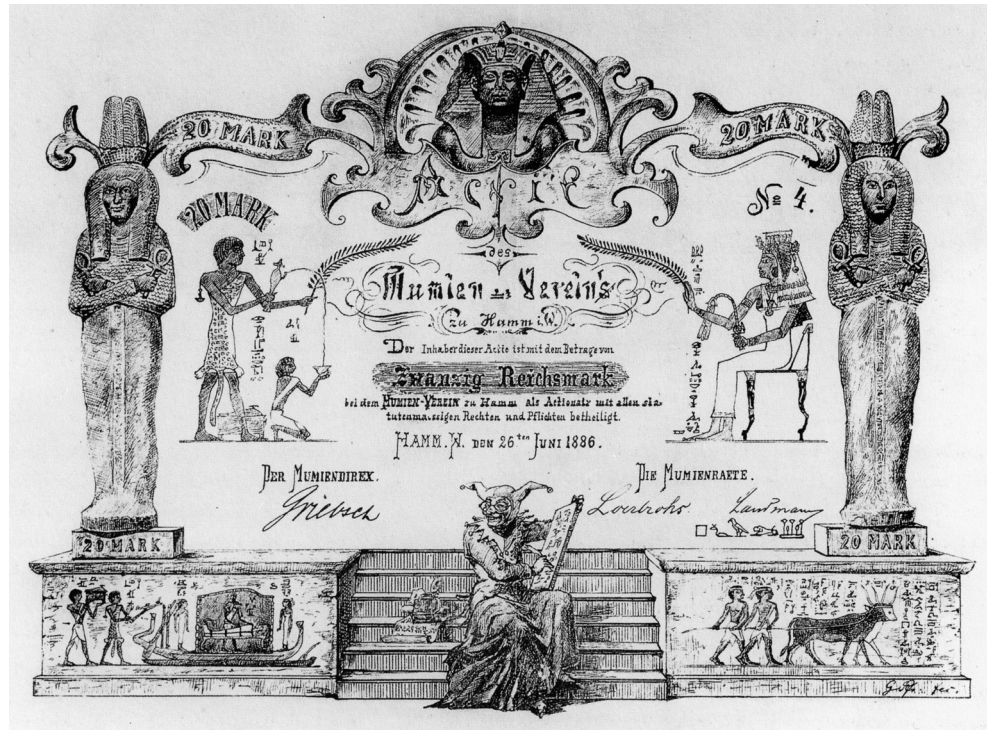 20 MARK
20 MARK
Actie
20 MARK
№ 4.
des
Mumien - Vereins
zu Hamm i. W.
Der Inhaber dieser Actie ist mit dem Betrage von
Zwanzig Reichsmark
bei dem MUMIEN-VEREIN zu Hamm als Actionair mit allen sta-
tutenmassigen Rechten und Pflichten betheiligt.
HAMM. W. DEN 26ten JUNI 1886.
DER MUMIENDIREX.
DIE MUMIENRAETE.
Griebsch
Loerbroks
Landmann
20 MARK
20 MARK